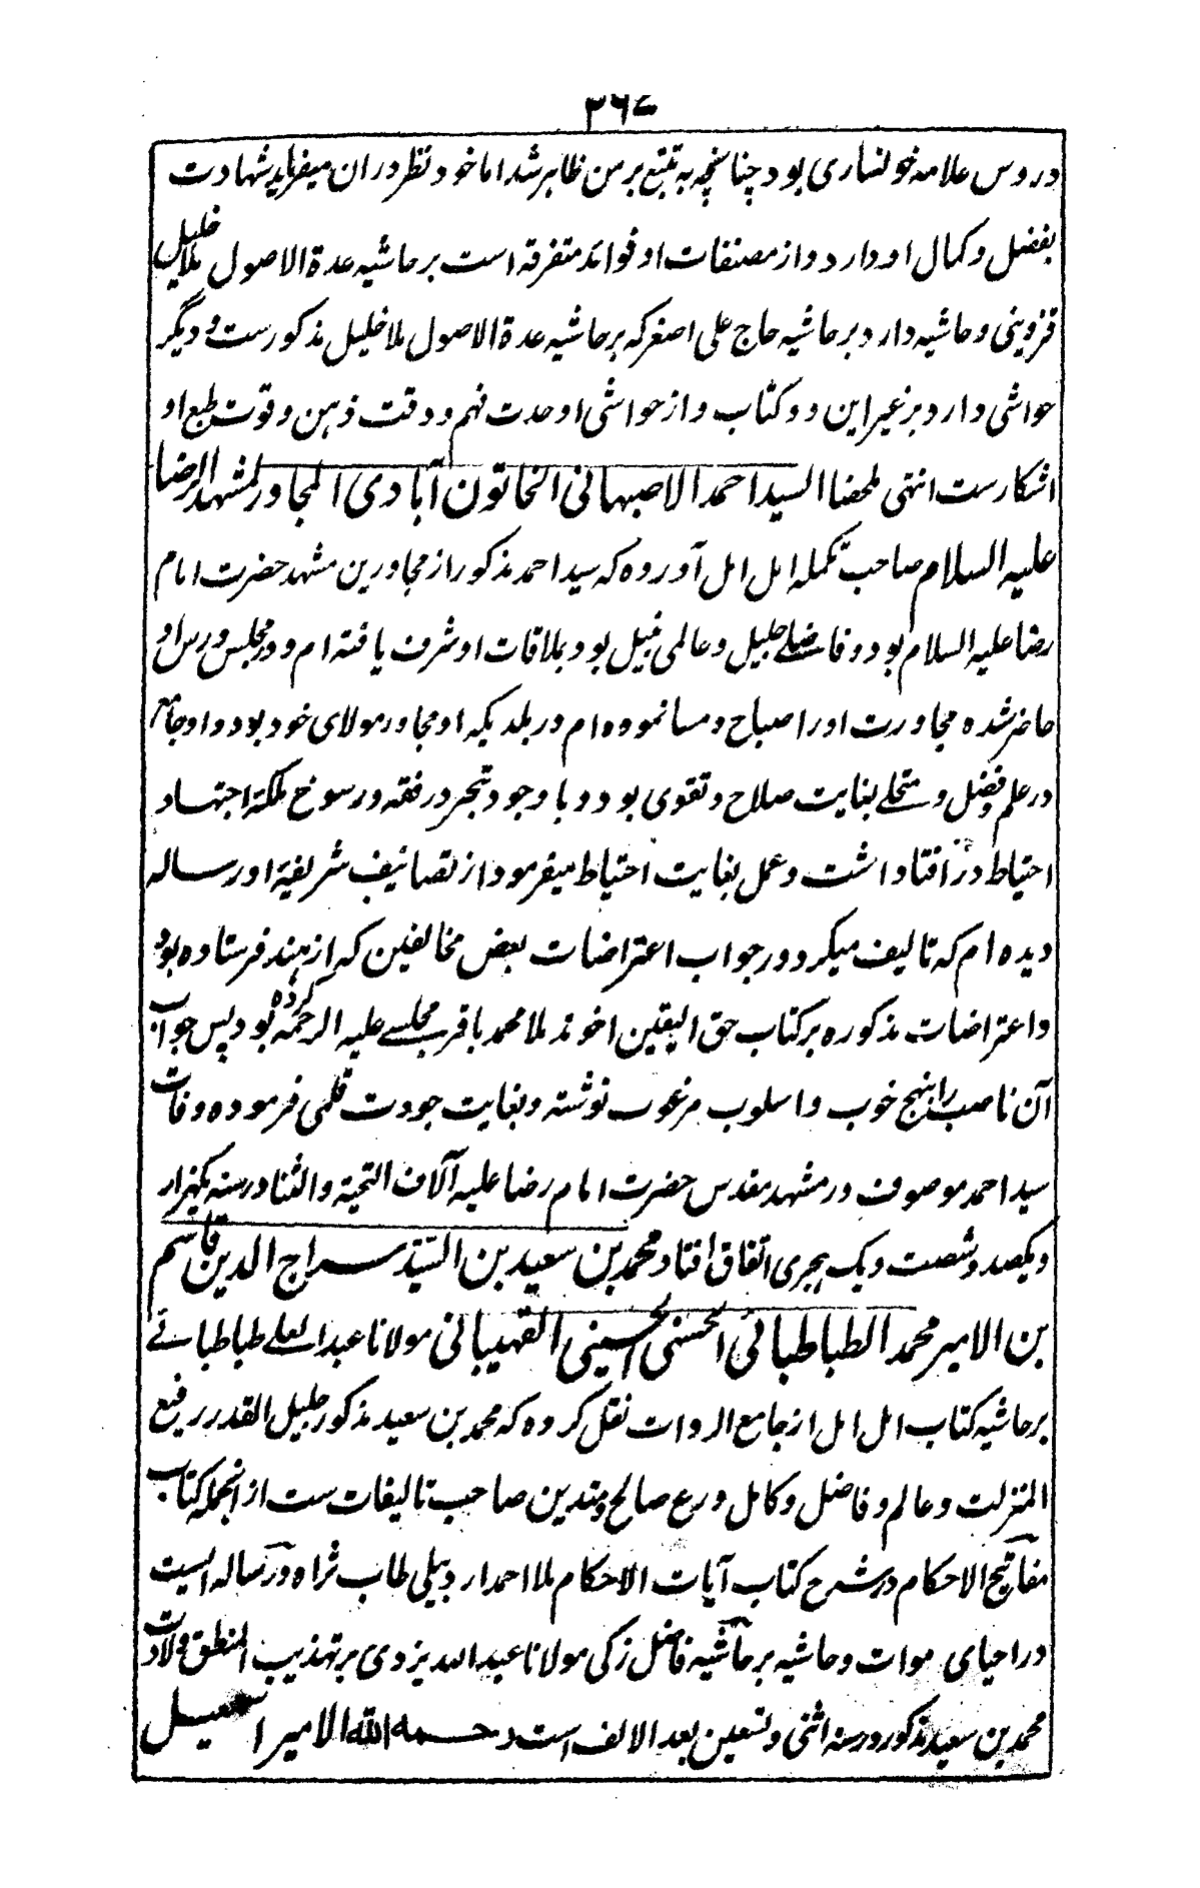 ۳۶۷
دروس علامه خوانساری بود چنانچه به تتبع بر من ظاهر شد اما خود نظر در ان میفرماید شهادت
بفضل و کمال او دارد و از مصنفات او فوائد متفرقه است بر حاشیه عدة الاصول ملا خلیل
قزوینی و حاشیه دارد بر حاشیه حاج علی اصغر که بر حاشیه عدة الاصول ملا خلیل مذکورست و دیگر
حواشی دارد بر غیر این دو کتاب و از حواشی او حدت فهم و دقت ذهن و قوت طبع او
اشکارست انتهی ملخصا السید احمد الاصبهانی الخاتون آبادی المجاور لمشهد الرضا
علیه السلام صاحب تکمله امل امل آورده که سید احمد مذکور از مجاورین مشهد حضرت امام
رضا علیه السلام بود و فاضلے جلیل و عالمی نبیل بود بملاقات او شرف یافته ام و در مجلس درس او
حاضر شده مجاورت او را صباح و مسا نموده ام در بلدیکه او مجاور مولای خود بود و او جامع
در علم و فضل و متحلے بغایت صلاح و تقوی بود و با وجود تبحر در فقه و رسوخ ملکة اجتهاد
احتیاط در افتا داشت و عمل بغایت احتیاط میفرمود از تصانیف شریفهٔ او رساله
دیده ام که تالیف میکرد در جواب اعتراضات بعض مخالفین که از هند فرستاده بود
و اعتراضات مذکوره بر کتاب حق الیقین اخوند ملا محمد باقر مجلسے علیه الرحمه کرده بود پس جواب
آن ناصب را بنهج خوب و اسلوب مرغوب نوشته و بغایت جودت قلمی فرموده وفات
سید احمد موصوف در مشهد مقدس حضرت امام رضا علیه آلاف التحیة و الثنا در سنه یکهزار
و یکصد و شصت و یک هجری اتفاق افتاد محمد بن سعید بن السید سراج الدین قاسم
بن الامیر محمد الطباطبائی الحسنی الحسینی القهپائی مولانا عبد العلے طباطبائے
بر حاشیه کتاب امل امل از جامع الروات نقل کرده که محمد بن سعید مذکور جلیل القدر رفیع
المنزلت و عالم و فاضل و کامل ورع صالح و متدین صاحب تالیفات ست از انجمله کتاب
مفاتیح الاحکام در شرح کتاب آیات الاحکام ملا احمد اردبیلی طاب ثراه و رساله ایست
در احیای موات و حاشیه بر حاشیه فاضل زکی مولانا عبد الله یزدی بر تهذیب المنطق ولادت
محمد بن سعید مذکور در سنه اثنی و تسعین بعد الالف است رحمه الله الامیر اسمعیل